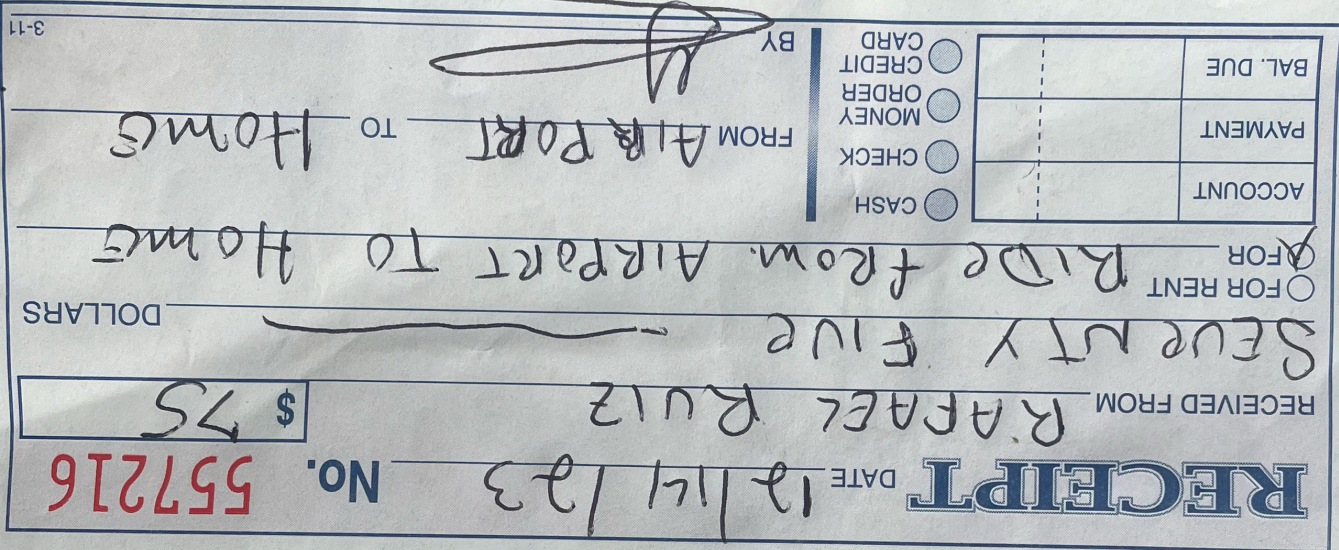 RECEIPT DATE 12/14/23 No. 557216
RECEIVED FROM RAFAEL RUIZ $ 75
SEVENTY FIVE DOLLARS
FOR RENT
FOR RIDE FROM AIRPORT TO HOME
ACCOUNT
PAYMENT
BAL. DUE
CASH
CHECK
MONEY ORDER
CREDIT CARD
FROM AIRPORT TO HOME
BY
3-11